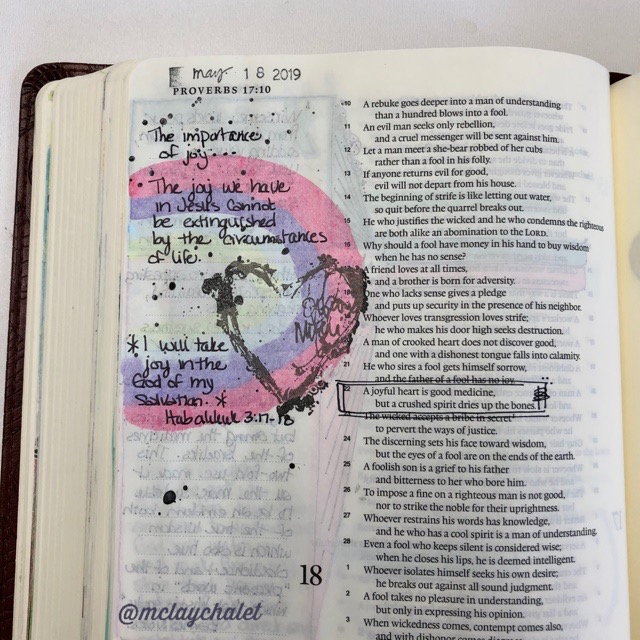 may 18 2019
PROVERBS 17:10
The importance
of joy...
The joy we have
in Jesus cannot
be extinguished
by the circumstances
of life.
*I will take
joy in the
God of my
Salvation.*
Habakkuk 3:17-18
@mclaychalet
10 A rebuke goes deeper into a man of understanding
than a hundred blows into a fool.
11 An evil man seeks only rebellion,
and a cruel messenger will be sent against him.
12 Let a man meet a she-bear robbed of her cubs
rather than a fool in his folly.
13 If anyone returns evil for good,
evil will not depart from his house.
14 The beginning of strife is like letting out water,
so quit before the quarrel breaks out.
15 He who justifies the wicked and he who condemns the righteous
are both alike an abomination to the LORD.
16 Why should a fool have money in his hand to buy wisdom
when he has no sense?
A friend loves at all times,
and a brother is born for adversity.
18 One who lacks sense gives a pledge
and puts up security in the presence of his neighbor.
Whoever loves transgression loves strife;
he who makes his door high seeks destruction.
A man of crooked heart does not discover good,
and one with a dishonest tongue falls into calamity.
21 He who sires a fool gets himself sorrow,
and the father of a fool has no joy.
22 A joyful heart is good medicine,
but a crushed spirit dries up the bones.
The wicked accepts a bribe in secret
to pervert the ways of justice.
24 The discerning sets his face toward wisdom,
but the eyes of a fool are on the ends of the earth.
25 A foolish son is a grief to his father
and bitterness to her who bore him.
26 To impose a fine on a righteous man is not good,
nor to strike the noble for their uprightness.
27 Whoever restrains his words has knowledge,
and he who has a cool spirit is a man of understanding.
28 Even a fool who keeps silent is considered wise;
when he closes his lips, he is deemed intelligent.
18
1 Whoever isolates himself seeks his own desire;
he breaks out against all sound judgment.
2 A fool takes no pleasure in understanding,
but only in expressing his opinion.
3 When wickedness comes, contempt comes also,
and with dishonor comes